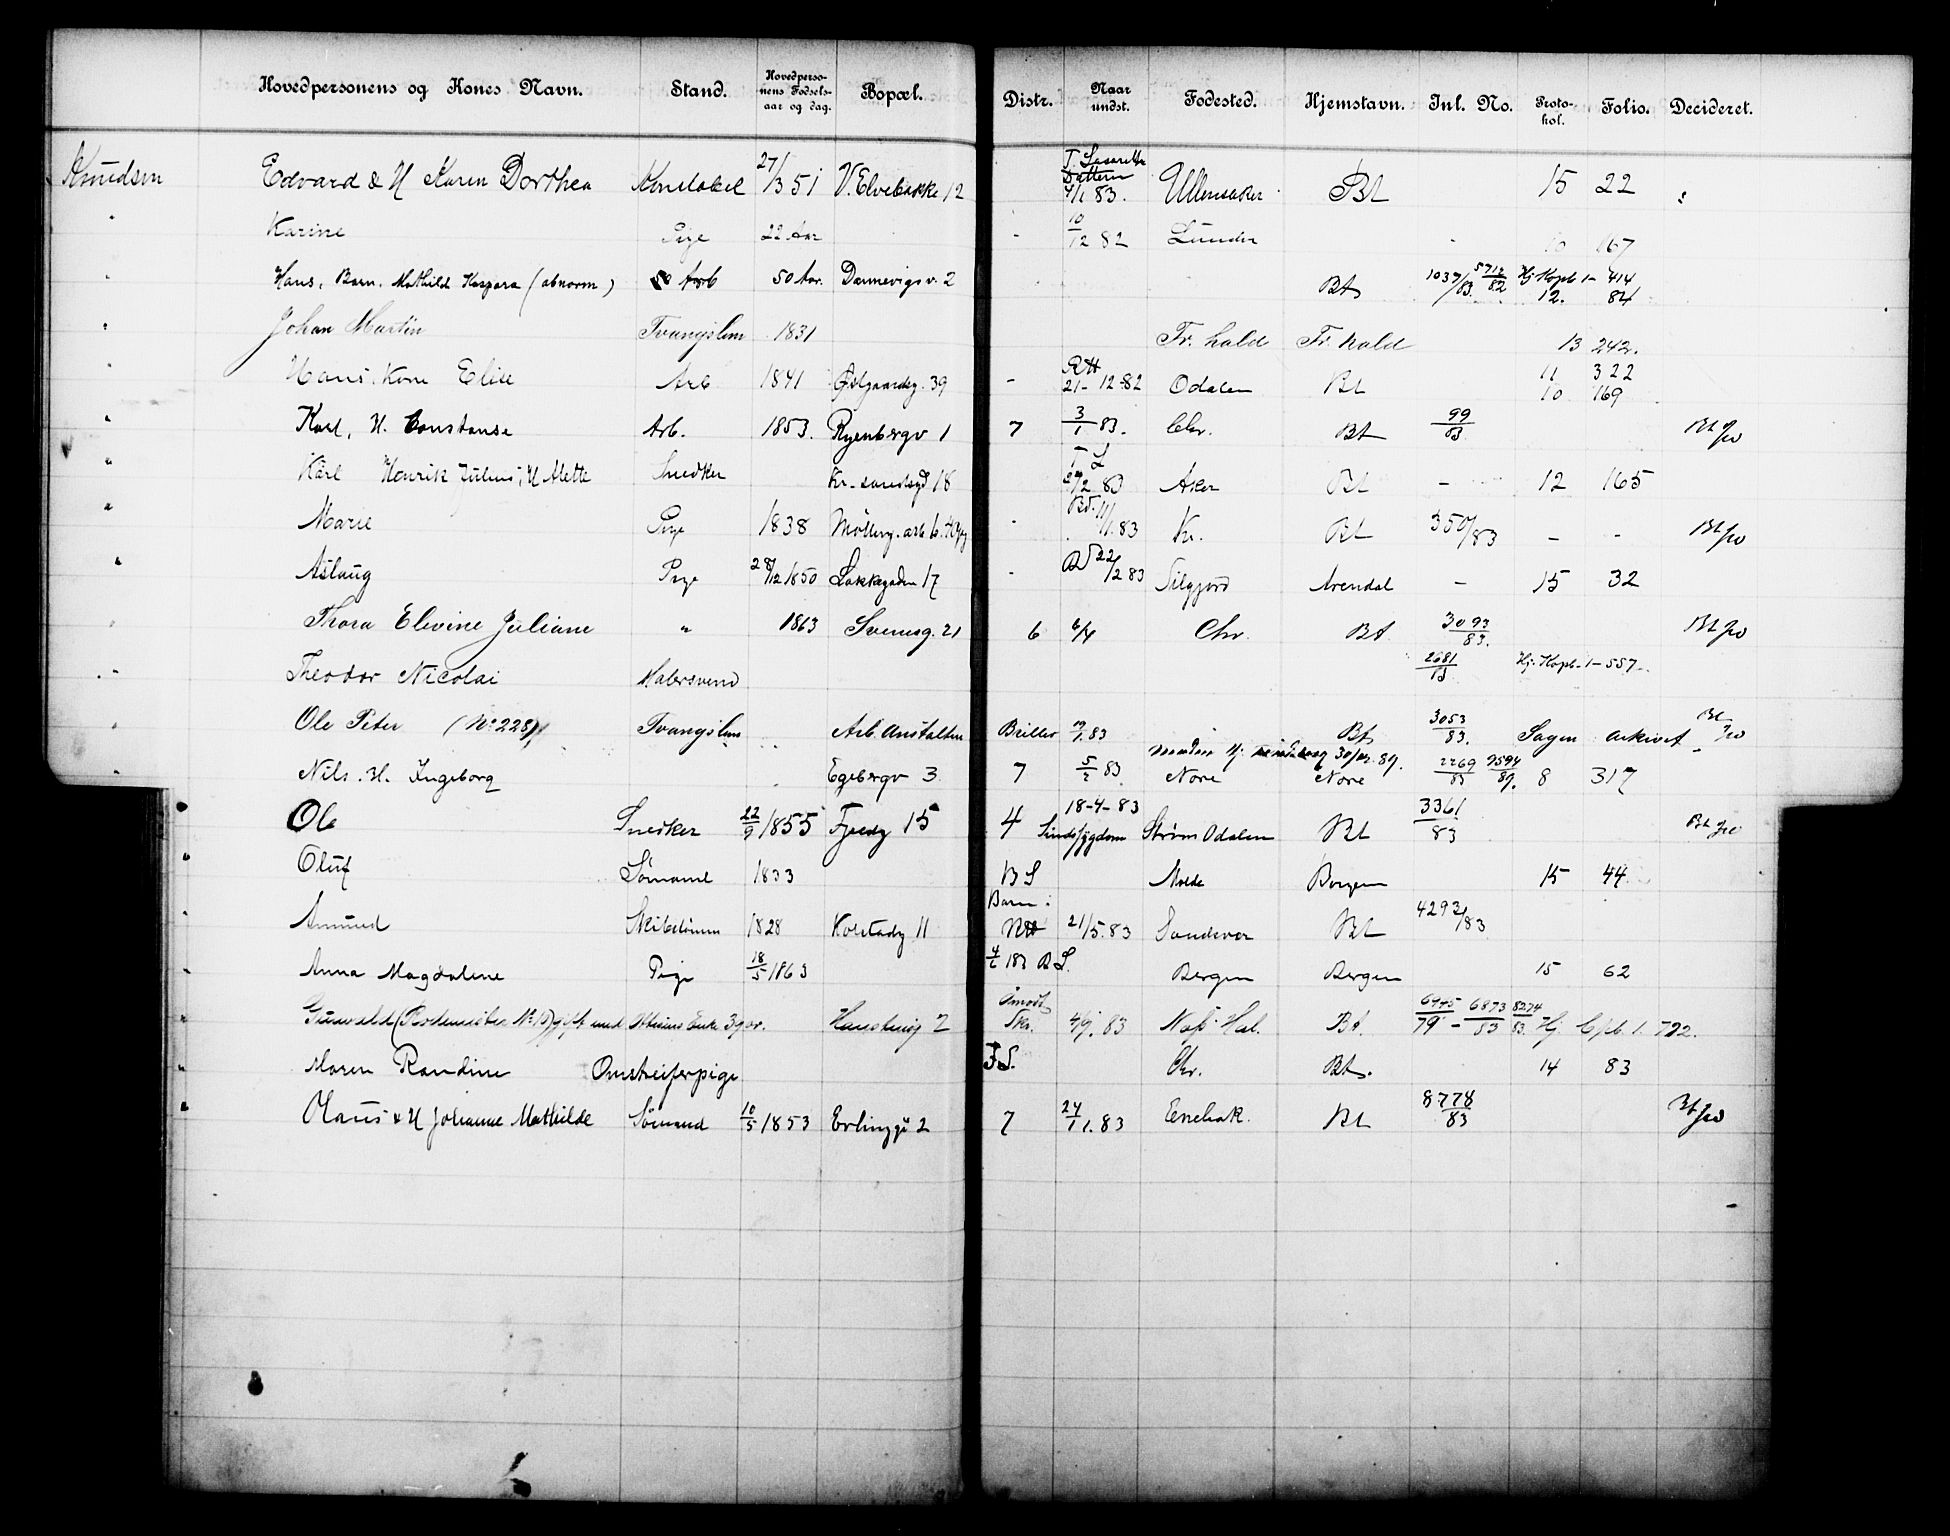 Hovedpersonens og Kones Navn. Stand. Hovedpersonens Fødselsaar og dag. Bopæl. Distr. Naar undst. Fødested. Hjemstavn. Inl. No. Protokol. Folio. Decideret.
Knudsen Edvard & H Karen Dorthea Konstabel 27/3 51 V. Elvebakke 12 T. Lasareth Datteren 4/1 83. Ullensaker Bt 15 22
" Karine Pige 22 Aar - 10/12 82 Lunder - 10 167
" Hans, Barn, Mathild Kaspara (abnorm) Arb 50 Aar. Dannevigsv. 2 Bt 1037/83 5712/82 Hj. Kopb 1- 414 12. 84
" Johan Martin Tvangslem 1831 Fr. hald Fr. hald 13 242.
" Hans. Kone Elise Arb 1841 Østgaardsg. 39 - Rtt 21-12-82 Odalen Bt 11 322 10 169
" Karl, H. Constanse Arb. 1853. Ryenbergv 1 7 3/1 83. Chr. Bt 99/83 Bt
" Karl Henrik Julius, H Alette Snedker 18 83 Aker Bt - 12 165
" Marie Pige 1838 - 11/1. 83 Kr. Bt 350/83 - - Bt
" Aslaug Pige 28/12 1850 Lakkegaden 17 - 22/2 83 Arendal - 15 32
" Thora Elevine Juliane " 1863 Svensg. 21 6 6/4 Chr. Bt 3093/83. Bt
" Theodor Nicolai Malersvend 2681/83 Hj. Kopb. 1-557
" Ole Peter (No. 228) Tvangslem Arb. Anstalten 83 Bt 3053/83. Sagen arkivet Bt
Nils. H. Ingeborg Egebergv 3 7 5/2 83 Nore Nore 2269/83 9594/89. 8 317
" Ole Snedker 22/9 1855 15 4 18-4-83 Sindssygdom Strøm Odalen Bt 3361/83 Bt
" Oluf Sømand 1833 B S Molde Bergen 15 44
" Amund 1828 Kolstadg 11 Barn: Rtt 21/5. 83 Bt 4293/83
" Anna Magdalene Pige 18/5 1863 B S. Bergen Bergen 15 62
" 2 83 Bt. 6873/83 8274/83. Hj. Cpb. 1. 722.
" Maren Randine Omstreiferpige F S. Chr. Bt. 14 83
" Olaus & H Johanne Mathilde Sømand 10/5 1853 Erlingsg 2 7 24/11. 83 Enebak. Bt 8778/83 Bt